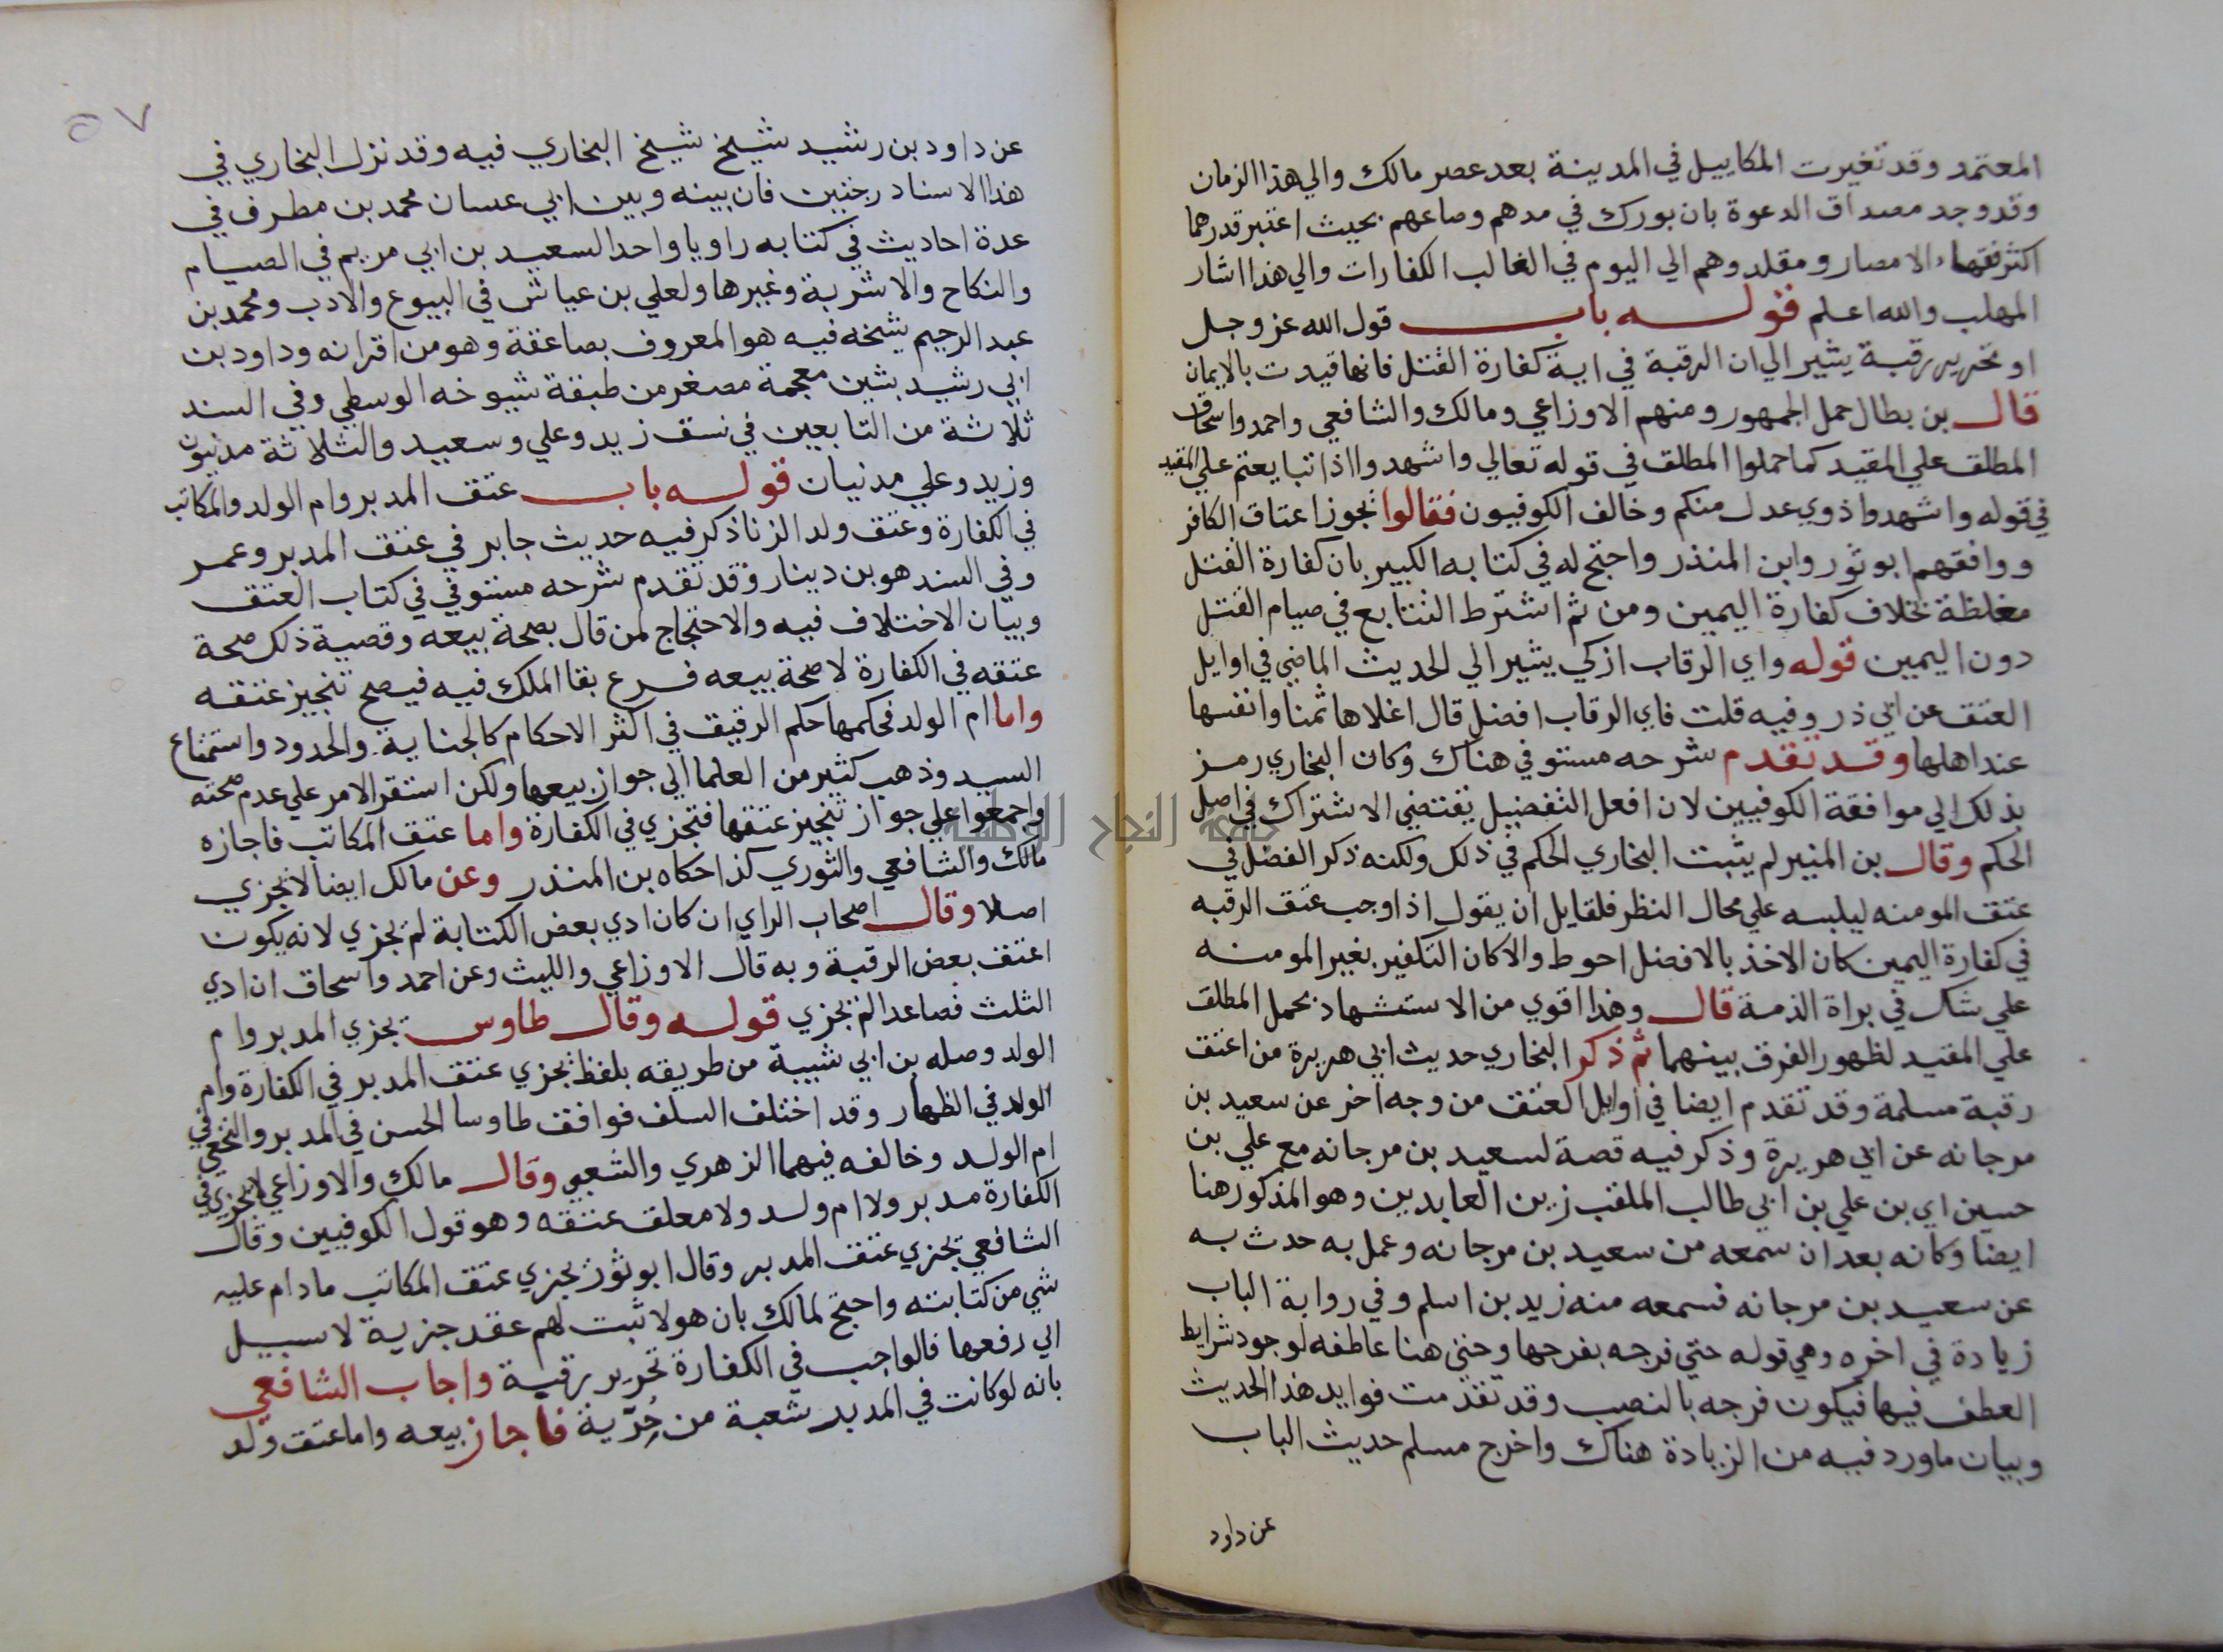 المعتمد وقد تغيرت المكاييل في المدينة بعد عصر مالك والي هذا الزمان
وقد وجد مصداق الدعوة بان بورك في مدهم وصاعهم بحيث اعتبر قدرهما
اكثر فقهاء الامصار ومقلدوهم الي اليوم في الغالب الكفارات والي هذا اشار
المهلب والله اعلم قوله باب قول الله عز وجل
او تحرير رقبة يشير الي ان الرقبة في اية كفارة القتل فانها قيدت بالايمان
قال بن بطال حمل الجمهور ومنهم الاوزاعي ومالك والشافعي واحمد واسحاق
المطلق علي المقيد كما حملوا المطلق في قوله تعالي واشهدوا اذا تبايعتم علي المقيد
في قوله واشهدوا ذوي عدل منكم وخالف الكوفيون فقالوا يجوز اعتاق الكافر
ووافقهم ابو ثور وابن المنذر واحتج له في كتابه الكبير بان كفارة القتل
مغلظة بخلاف كفارة اليمين ومن ثم اشترط التتابع في صيام القتل
دون اليمين قوله واي الرقاب ازكي يشير الي الحديث الماضي في اوايل
العتق عن ابي ذر وفيه قلت فاي الرقاب افضل قال اغلاها ثمنا وانفسها
عند اهلها وقد تقدم شرحه مستوفي هناك وكان البخاري رمز
بذلك الي موافقة الكوفيين لان افعل التفضيل يقتضي الاشتراك في اصل
الحكم وقال بن المنير لم يثبت البخاري الحكم في ذلك ولكنه ذكر الفضل في
عتق المومنه لينبه علي محال النظر فلقايل ان يقول اذا وجب عتق الرقبه
في كفارة اليمين كان الاخذ بالافضل احوط والا كان التكفير بغير المومنه
علي شك في براة الذمة قال وهذا اقوي من الاستشهاد بحمل المطلق
علي المقيد لظهور الفرق بينهما ثم ذكر البخاري حديث ابي هريرة من اعتق
رقبة مسلمة وقد تقدم ايضا في اوايل العتق من وجه اخر عن سعيد بن
مرجانه عن ابي هريرة وذكر فيه قصة لسعيد بن مرجانه مع علي بن
حسين اي بن علي بن ابي طالب الملقب زين العابدين وهو المذكور هنا
ايضا وكانه بعد ان سمعه من سعيد بن مرجانه وعمل به حدث به
عن سعيد بن مرجانه فسمعه منه زيد بن اسلم وفي رواية الباب
زيادة في اخره وهي قوله حتي فرجه بفرجها وحتي هنا عاطفه لوجود شرايط
العطف فيها فيكون فرجه بالنصب وقد تقدمت فوايد هذا الحديث
وبيان ما ورد فيه من الزيادة هناك واخرج مسلم حديث الباب
عن داود
٥٧
عن داود بن رشيد شيخ شيخ البخاري فيه وقد نزل البخاري في
هذا الاسناد رجتين فان بينه وبين ابي عسان محمد بن مطرف في
عدة احاديث في كتابه راويا واحدا لسعيد بن ابي مريم في الصيام
والنكاح والاشربة وغيرها ولعلي بن عياش في البيوع والادب ومحمد بن
عبد الرحيم شيخه فيه هو المعروف بصاعقة وهو من اقرانه وداود بن
ابي رشيد بشين معجمة مصغر من طبقة شيوخه الوسطي وفي السند
ثلاثة من التابعين في نسق زيد وعلي وسعيد والثلاثة مدنيون
وزيد وعلي مدنيان قوله باب عتق المدبر وام الولد والمكاتب
في الكفارة وعتق ولد الزنا ذكر فيه حديث جابر في عتق المدبر وعمر
وفي السند هو بن دينار وقد تقدم شرحه مستوفي في كتاب العتق
وبيان الاختلاف فيه والاحتجاج لمن قال بصحة بيعه وقصية ذلك صحة
عتقه في الكفارة لا صحة بيعه فرع بقا الملك فيه فيصح تنجيز عتقه
واما ام الولد فحكمها حكم الرقيق في اكثر الاحكام كالجناية والحدود واستمتاع
السيد وذهب كثير من العلما الي جواز بيعها ولكن استقر الامر علي عدم صحته
واجمعوا علي جواز تنجيز عتقها فتجزي في الكفارة واما عتق المكاتب فاجازه
مالك والشافعي والثوري كذا حكاه بن المنذر وعن مالك ايضا لا يجزي
اصلا وقال اصحاب الراي ان كان ادي بعض الكتابة لم يجزي لانه يكون
اعتق بعض الرقبة وبه قال الاوزاعي والليث وعن احمد واسحاق ان ادي
الثلث فصاعدا لم يجزي قوله وقال طاوس يجزي المدبر وام
الولد وصله بن ابي شيبة من طريقه بلفظ يجزي عتق المدبر في الكفارة وام
الولد في الظهار وقد اختلف السلف فوافق طاوسا الحسن في المدبر والنخعي في
ام الولد وخالفه فيهما الزهري والشعبي وقال مالك والاوزاعي لا يجزي في
الكفارة مدبر ولا ام ولد ولا معلق عتقه وهو قول الكوفيين وقال
الشافعي يجزي عتق المدبر وقال ابو ثور يجزي عتق المكاتب ما دام عليه
شي من كتابته واحتج لمالك بان هولا ثبت لهم عقد جزية لا سبيل
الي رفعها فالواجب في الكفارة تحرير رقبة واجاب الشافعي
بانه لو كانت في المدبر شعبة من حُرّية فاجاز بيعه واما عتق ولد
جامعة النجاح الوطنية